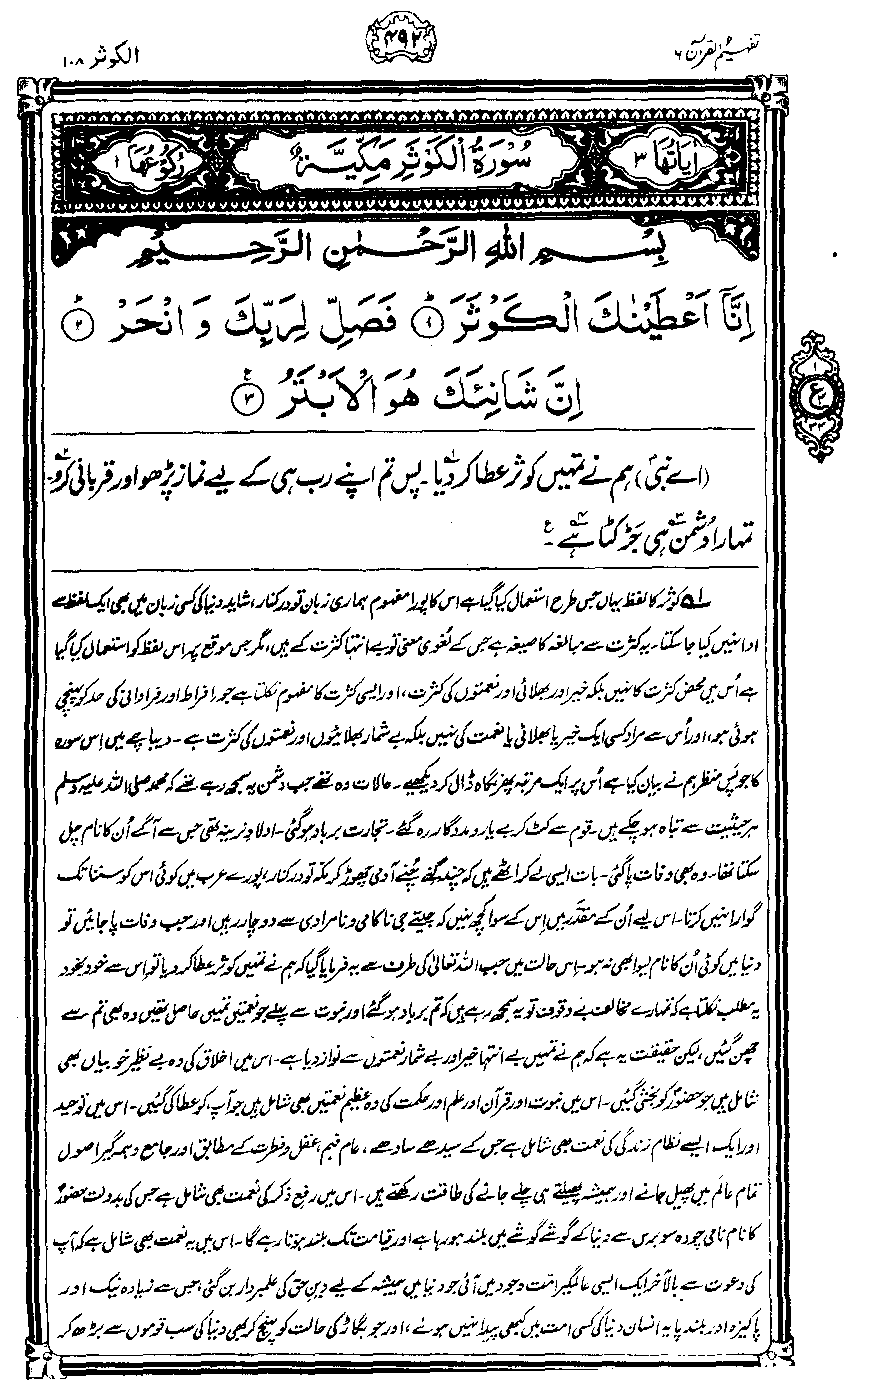 تفہیم القرآن ۶
۴۹۲
الکوثر ۱۰۸
اٰیَاتُهَا ۳
سُوْرَةُ الْكَوْثَرِ مَكِّيَّةٌ
رُكُوْعُهَا ۱
بِسْمِ اللّٰهِ الرَّحْمٰنِ الرَّحِيْمِ
اِنَّاۤ اَعْطَيْنٰكَ الْكَوْثَرَ ؕ ﴿۱﴾ فَصَلِّ لِرَبِّكَ وَ انْحَرْ ؕ ﴿۲﴾
اِنَّ شَانِئَكَ هُوَ الْاَبْتَرُ ﴿۳﴾ ع
۱
ع
۳۲
(اے نبیؐ) ہم نے تمہیں کوثر عطا کر دیا۱؎۔ پس تم اپنے رب ہی کے لیے نماز پڑھو اور قربانی کرو۲؎۔
تمہارا دشمن۳؎ ہی جڑ کٹا۴؎ ہے۔ ع
۱؎ کوثر کا لفظ یہاں جس طرح استعمال کیا گیا ہے اس کا پورا مفہوم ہماری زبان تو درکنار، شاید دنیا کی کسی زبان میں بھی ایک لفظ سے
ادا نہیں کیا جا سکتا۔ یہ کثرت سے مبالغہ کا صیغہ ہے جس کے لغوی معنی تو بے انتہا کثرت کے ہیں، مگر جس موقع پر اس لفظ کو استعمال کیا گیا
ہے اُس میں محض کثرت کا نہیں بلکہ خیر اور بھلائی اور نعمتوں کی کثرت، اور ایسی کثرت کا مفہوم نکلتا ہے جو افراط اور فراوانی کی حد کو پہنچی
ہوئی ہو، اور اُس سے مراد کسی ایک خیر یا بھلائی یا نعمت کی نہیں بلکہ بے شمار بھلائیوں اور نعمتوں کی کثرت ہے۔ دیباچے میں اِس سورہ
کا جو پس منظر ہم نے بیان کیا ہے اُس پر ایک مرتبہ پھر نگاہ ڈال کر دیکھیے۔ حالات وہ تھے جب دشمن یہ سمجھ رہے تھے کہ محمد صلی اللہ علیہ وسلم
ہر حیثیت سے تباہ ہو چکے ہیں۔ قوم سے کٹ کر بے یار و مددگار رہ گئے۔ تجارت برباد ہو گئی۔ اولاد نرینہ تھی جس سے آگے اُن کا نام چل
سکتا تھا۔ وہ بھی وفات پا گئی۔ بات ایسی لے کر اٹھے ہیں کہ چند گنے چُنے آدمی چھوڑ کر مکہ تو درکنار، پورے عرب میں کوئی اس کو سننا تک
گوارا نہیں کرتا۔ اس لیے اُن کے مقدر میں اِس کے سوا کچھ نہیں کہ جیتے جی ناکامی و نامرادی سے دوچار رہیں اور جب وفات پا جائیں تو
دنیا میں کوئی اُن کا نام لیوا بھی نہ ہو۔ اس حالت میں جب اللہ تعالیٰ کی طرف سے یہ فرمایا گیا کہ ہم نے تمہیں کوثر عطا کر دیا تو اِس سے خودبخود
یہ مطلب نکلتا ہے کہ تمہارے مخالف بے وقوف تو یہ سمجھ رہے ہیں کہ تم برباد ہو گئے اور نبوت سے پہلے جو نعمتیں تمہیں حاصل تھیں وہ بھی تم سے
چھن گئیں، لیکن حقیقت یہ ہے کہ ہم نے تمہیں بے انتہا خیر اور بے شمار نعمتوں سے نواز دیا ہے۔ اس میں اخلاق کی وہ بے نظیر خوبیاں بھی
شامل ہیں جو حضورؐ کو بخشی گئیں۔ اس میں نبوت اور قرآن اور علم اور حکمت کی وہ عظیم نعمتیں بھی شامل ہیں جو آپ کو عطا کی گئیں۔ اس میں توحید
اور ایک ایسے نظام زندگی کی نعمت بھی شامل ہے جس کے سیدھے سادھے، عام فہم، عقل و فطرت کے مطابق اور جامع و ہمہ گیر اصول
تمام عالم میں پھیل جانے اور ہمیشہ پھیلتے ہی چلے جانے کی طاقت رکھتے ہیں۔ اس میں رفع ذکر کی نعمت بھی شامل ہے جس کی بدولت حضورؐ
کا نام نامی چودہ سو برس سے دنیا کے گوشے گوشے میں بلند ہو رہا ہے اور قیامت تک بلند ہوتا رہے گا۔ اس میں یہ نعمت بھی شامل ہے کہ آپ
کی دعوت سے بالآخر ایک ایسی عالمگیر امت وجود میں آئی جو دنیا میں ہمیشہ کے لیے دین حق کی علمبردار بن گئی، جس سے زیادہ نیک اور
پاکیزہ اور بلند پایہ انسان دنیا کی کسی امت میں کبھی پیدا نہیں ہوئے، اور جو بگاڑ کی حالت کو پہنچ کر بھی دنیا کی سب قوموں سے بڑھ کر